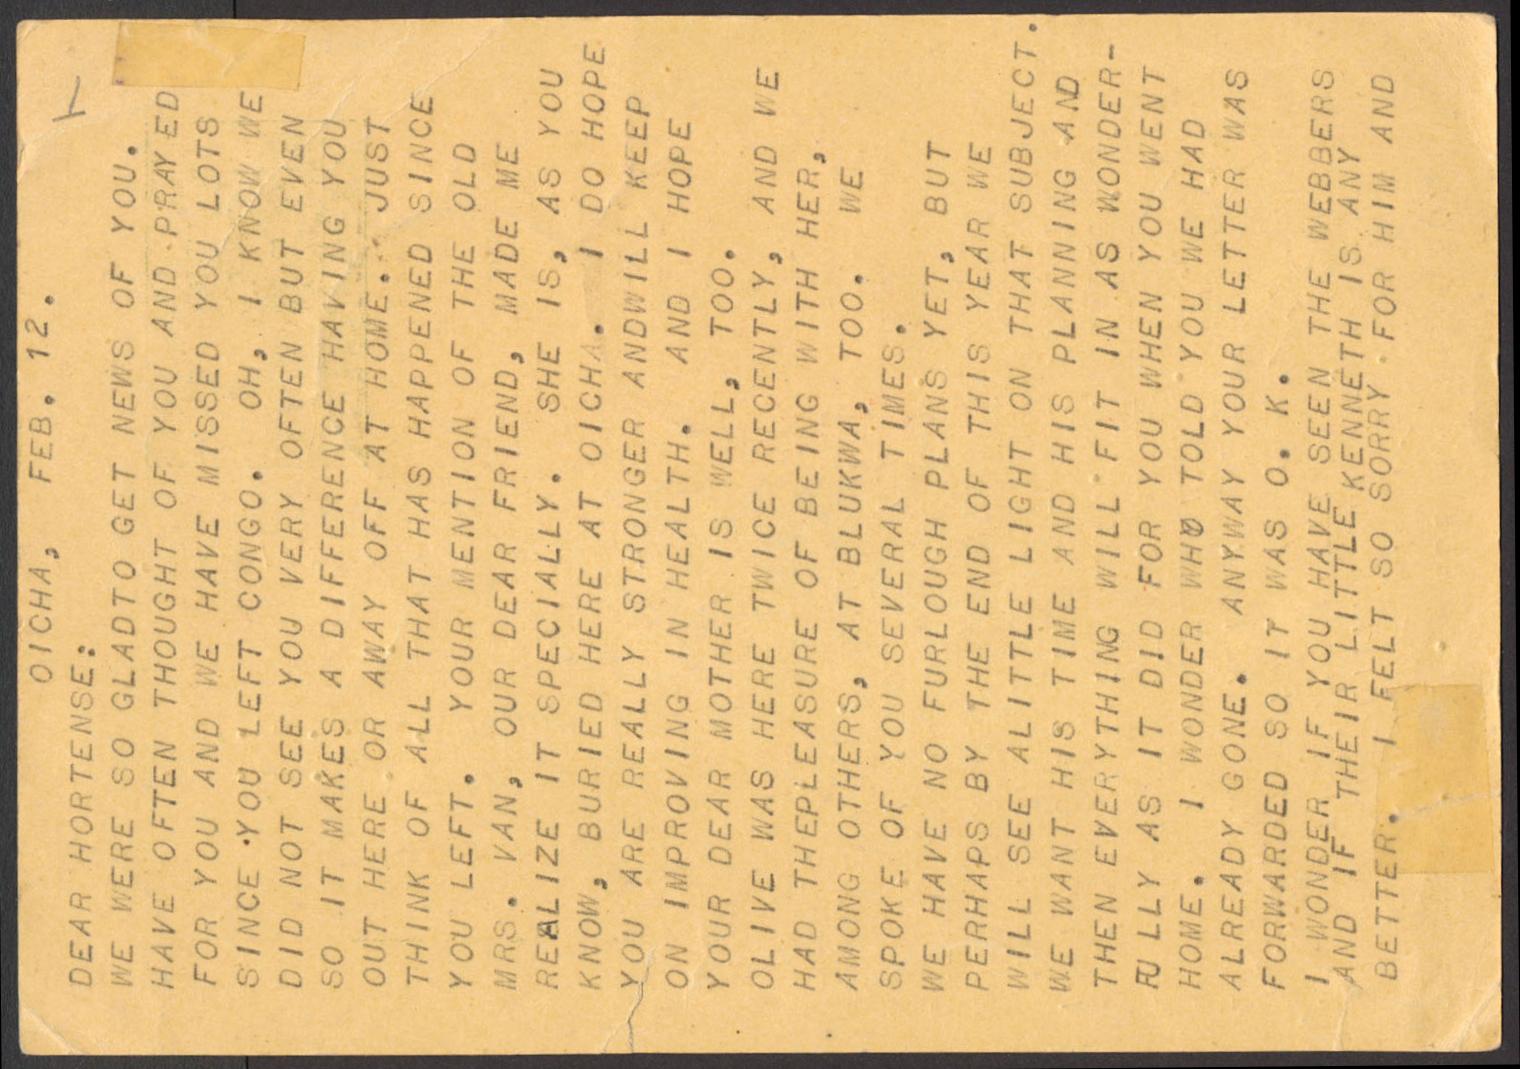 OICHA, FEB. 12.
DEAR HORTENSE:
WE WERE SO GLADTO GET NEWS OF YOU.
HAVE OFTEN THOUGHT OF YOU AND PRAYED
FOR YOU AND WE HAVE MISSED YOU LOTS
SINCE YOU LEFT CONGO. OH, I KNOW WE
DID NOT SEE YOU VERY OFTEN BUT EVEN
SO IT MAKES A DIFFERENCE HAVING YOU
OUT HERE OR AWAY OFF AT HOME. JUST
THINK OF ALL THAT HAS HAPPENED SINCE
YOU LEFT. YOUR MENTION OF THE OLD
MRS. VAN, OUR DEAR FRIEND, MADE ME
REALIZE IT SPECIALLY. SHE IS, AS YOU
KNOW, BURIED HERE AT OICHA. I DO HOPE
YOU ARE REALLY STRONGER ANDWILL KEEP
ON IMPROVING IN HEALTH. AND I HOPE
YOUR DEAR MOTHER IS WELL, TOO.
OLIVE WAS HERE TWICE RECENTLY, AND WE
HAD THEPLEASURE OF BEING WITH HER,
AMONG OTHERS, AT BLUKWA, TOO. WE
SPOKE OF YOU SEVERAL TIMES.
WE HAVE NO FURLOUGH PLANS YET, BUT
PERHAPS BY THE END OF THIS YEAR WE
WILL SEE ALITTLE LIGHT ON THAT SUBJECT.
WE WANT HIS TIME AND HIS PLANNING AND
THEN EVERYTHING WILL FIT IN AS WONDER-
FULLY AS IT DID FOR YOU WHEN YOU WENT
HOME. I WONDER WHO TOLD YOU WE HAD
ALREADY GONE. ANYWAY YOUR LETTER WAS
FORWARDED SO IT WAS O. K.
I WONDER IF YOU HAVE SEEN THE WEBBERS
AND IF THEIR LITTLE KENNETH IS ANY
BETTER. I FELT SO SORRY FOR HIM AND